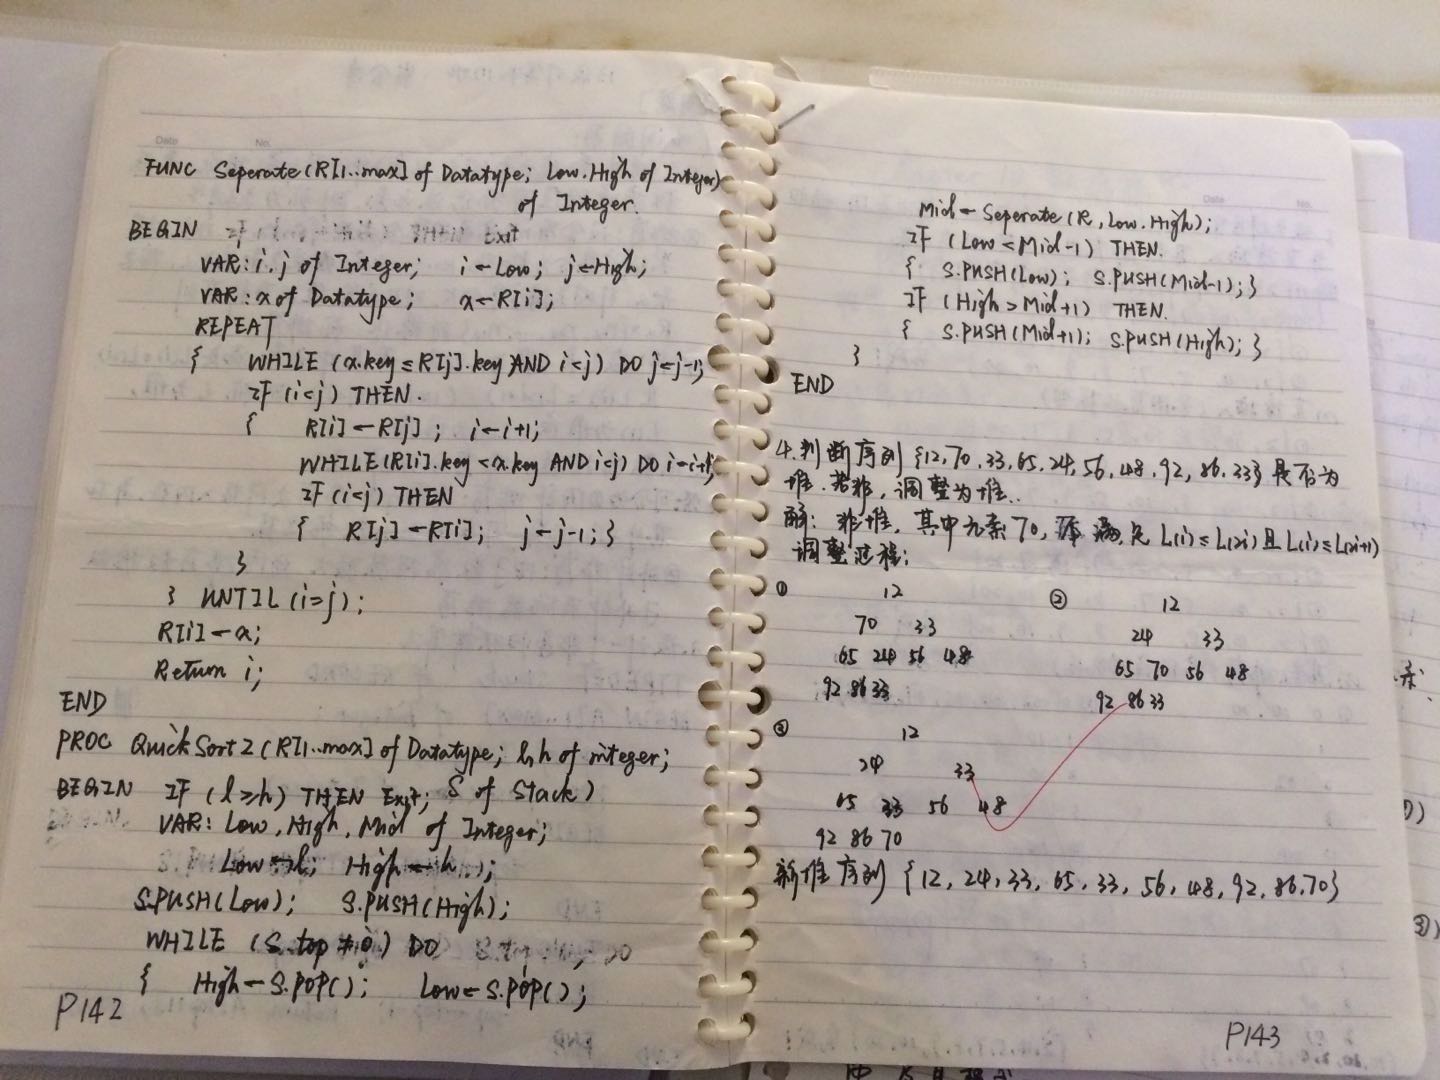 Date No.
FUNC Seperate(R[1..max] of Datatype; Low.High of Integer)
of Integer.
BEGIN
VAR: i.j of Integer; i←Low; j←High;
VAR: x of Datatype; x←R[i];
REPEAT
{ WHILE (x.key≤R[j].key AND i<j) DO j←j-1;
IF (i<j) THEN.
{ R[i]←R[j]; i←i+1;
WHILE(R[i].key<x.key AND i<j) DO i←i+1;
IF (i<j) THEN
{ R[j]←R[i]; j←j-1; }
}
} UNTIL (i=j);
R[i]←x;
Return i;
END
PROC QuickSort2(R[1..max] of Datatype; l,h of integer;
S of Stack)
BEGIN IF (l≥h) THEN Exit;
VAR: Low, High, Mid of Integer;
Low←l; High←h;
S.PUSH(Low); S.PUSH(High);
WHILE (S.top≠0) DO
{ High←S.POP(); Low←S.POP();
P142
Date No.
Mid←Seperate(R, Low.High);
IF (Low<Mid-1) THEN.
{ S.PUSH(Low); S.PUSH(Mid-1); }
IF (High>Mid+1) THEN.
{ S.PUSH(Mid+1); S.PUSH(High); }
}
END
4.判断序列{12,70,33,65,24,56,48,92,86,33}是否为
堆.若非,调整为堆.
解: 非堆, 其中元素70, 满足 L(i)≤L(2i)且L(i)≤L(2i+1)
调整过程:
① 12
70 33
65 24 56 48
92 86 33
② 12
24 33
65 70 56 48
92 86 33
③ 12
24 33
65 33 56 48
92 86 70
新堆序列{12,24,33,65,33,56,48,92,86,70}
P143